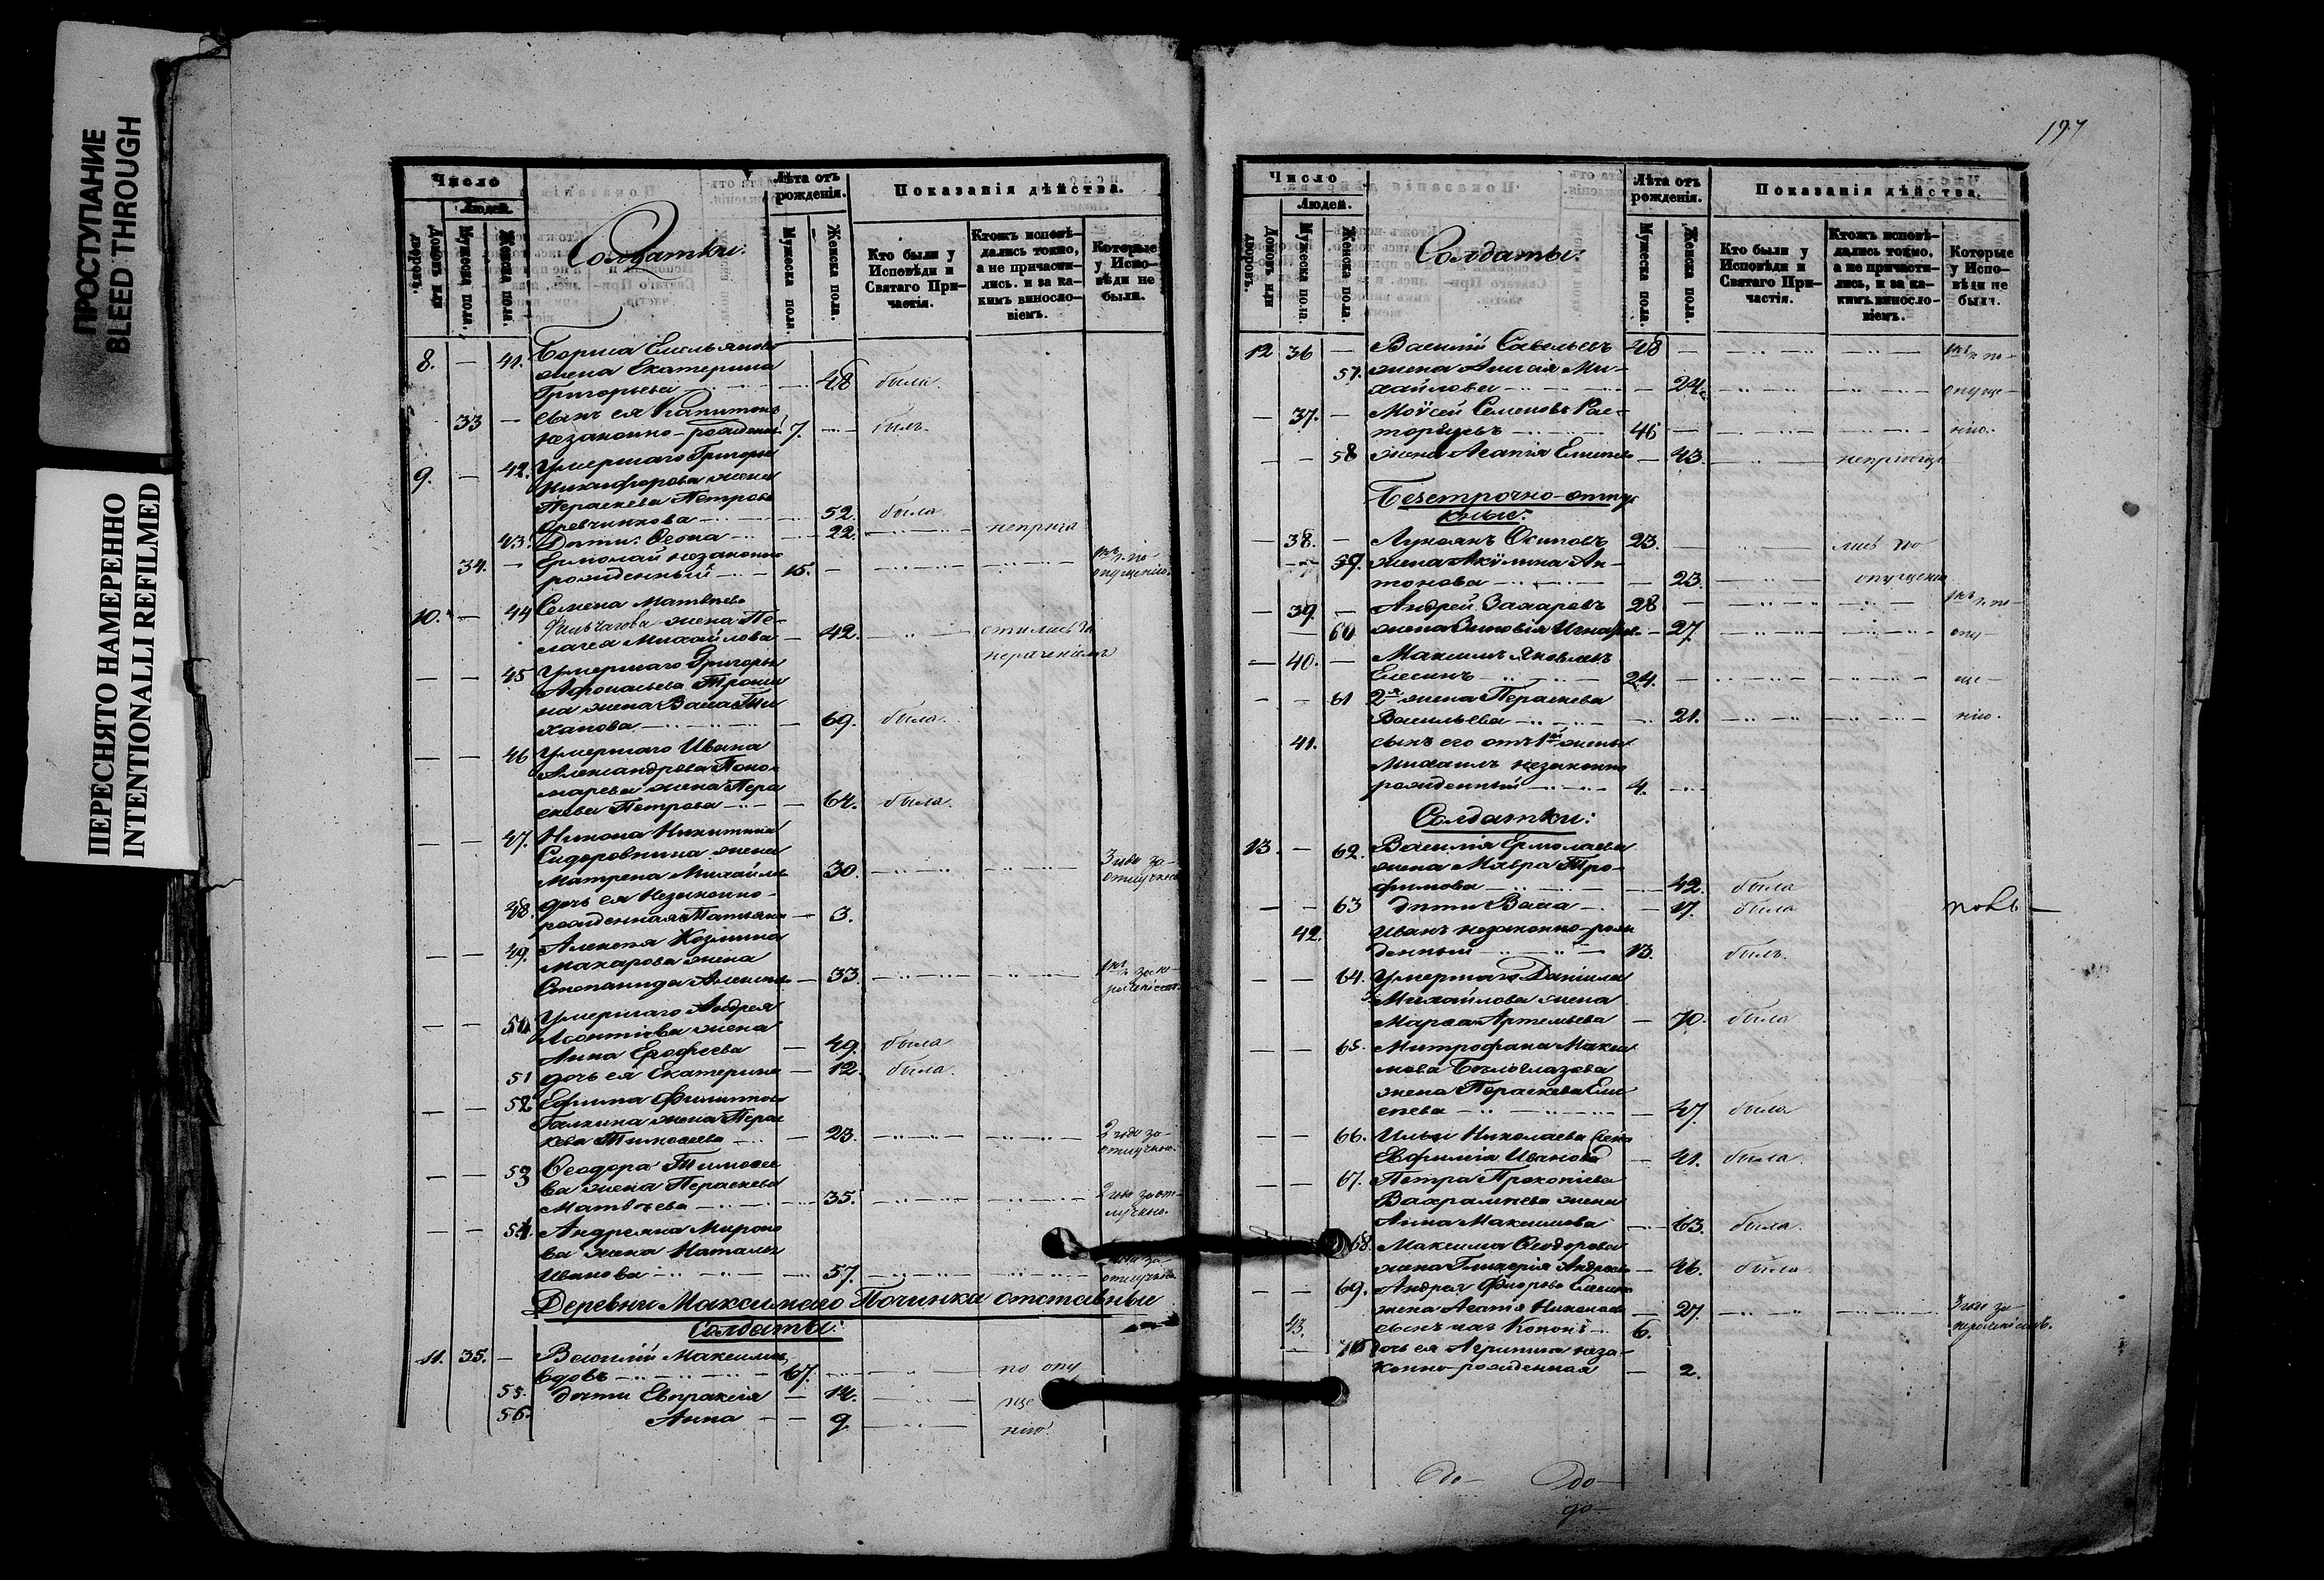 ПРОСТУПАНИЕ
BLEED THROUGH
ПЕРЕСНЯТО НАМЕРЕННО
INTENTIONALLI REFILMED
Число
Людей.
Домовъ или дворовъ.
Мужеска пола.
Женска пола.
Солдатки:
Лѣта отъ рожденія.
Мужеска пола.
Женска пола.
Показанія дѣйства.
Кто были у Исповѣди и Святаго Причастія.
Ктожъ исповѣдались токмо, а не причастились, и за какимъ винословіемъ.
Которые у Исповѣди не были.
8. — 41. Бориса Емельянова
жена Екатерина
Григорьева 48 была.
33 — сынъ ея Капитонъ
незаконно-рожденный 7. былъ.
9. — 42. Умершаго Григорья
Никифорова жена
Параскева Петрова
52. была
43. Дети: Ѳеона 22.
34. — Ермолай незаконно
рожденный 15. опущенію.
10. — 44 Семена Матвѣева
жена Пе-
лагея Михайлова — 42.
нераченіемъ
— — 45 Умершаго Григорья
Афонасьева
на жена Васса Ти
ханова — 69. была.
— — 46 Умершаго Ивана
Александрова Поно-
марева жена Пара
скева Петрова — 64. была.
— — 47. Никона Никитина
Сидоровнина жена
Матрена Михайлова 30. 3 года за
отлучкою
48. дочь ея незаконно-
рожденная Татьяна — 3.
— — 49. Алексѣя Козмина
Макарова жена
Степанида Алексѣева — 33.
— — 50 Умершаго Андрея
Леонтіева жена
Анна Ерофеева — 49. была
51 дочь ея Екатерина — 12. была.
— — 52 Ефима Филиппова
Галкина жена Парас
кева Тимоѳеева — 23. 2 года за
отлучкою.
— 53 Ѳеодора Тимоѳее
ва жена Параскева
Матвѣева 35. 2 года за от-
лучкою.
— — 54. Андреяна Мироно
ва жена Наталья
Иванова 57. отлучкою.
Деревни Максимова Починка отставные
Солдаты:
11. 35. — Василій Максимовъ
вдовъ 67. по опу
55. дѣти Евпраксія — 14. ще
56. Анна — — 9. нію.
197
Число
Людей.
Домовъ или дворовъ.
Мужеска пола.
Женска пола.
Солдаты:
Лѣта отъ рожденія.
Мужеска пола.
Женска пола.
Показанія дѣйства.
Кто были у Исповѣди и Святаго Причастія.
Ктожъ исповѣдались токмо, а не причастились, и за какимъ винословіемъ.
Которые у Исповѣди не были.
12 36 — Василій Савельевъ 48 —
57. жена Анисія Ми-
хайлова — 24. опуще-
— 37. — Моѵсей Семеновъ Рас-
торгуевъ 46 — нію.
— — 58 жена Агапія — 43.
Безсрочно-отпу
скные:
— 38. — Лукоянъ Осиповъ 23. лись по
59. жена Акулина Ан-
тонова — 23. опущенію
— 39. — Андрей Захаровъ 28 —
— 60 жена Зиновія — 27 опу-
— 40. — Максимъ Яковлевъ
Елесинъ 24. — ще-
— — 61 2я жена Параскева
Васильева 21. нію.
41. сынъ его отъ 1й жены
Михаилъ незаконно
рожденный 4.
Солдатки:
13. — 62. Василія Ермолаева
жена Мавра Тро-
фимова 42. была
— — 63 дѣти Васса — 17. была
42. Иванъ незаконно-рож
денный 13. былъ.
— — 64. Умершаго Даніила
Михайлова жена
Марѳа Артемьева — 70. была
— — 65. Митрофана Макси
мова Бѣлоглазова
жена Параскева Ели
сѣева — 47. была
— — 66. Ильи Николаева жена
Евфимія Иванова — 41. была.
— — 67. Петра Прокопіева
Вахрамѣева жена
Анна Максимова 63. была.
68. Максима Ѳеодорова
жена Гликерія Андреева — 46. была.
— — 69. Андрея
жена Агапія Николаева — 27. 3 года за
43. сынъ 6. нераченіемъ.
— 70 дочь ея Агрипина неза-
конно-рожденная — 2.
до